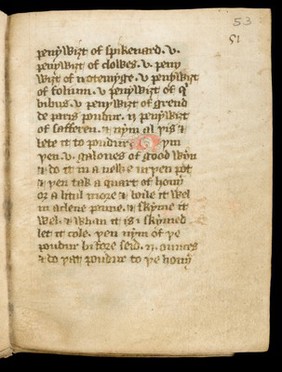 53
51
penywiȝt of spikenard . v .
penywiȝt of clowes . v . peny
wiȝt of notemyge . v penywiȝt
of folium . v penywiȝt of q
bibus . v penywiȝt of greyns
de paris poudur . ij penywiȝt
of safferen . & nym al yis &
bete it to poudur . Nym
yen . v . galones of good wyn
& do it in a newe erþyen pot
& yen tak a quart of hony
or a litul more & boile it wel
in a clene panne . & skyme it
wel . & whan it is i skymed
let it cole . yen nym of ye
poudur bifore seid . ij . ounces
& do yat poudur to ye hony